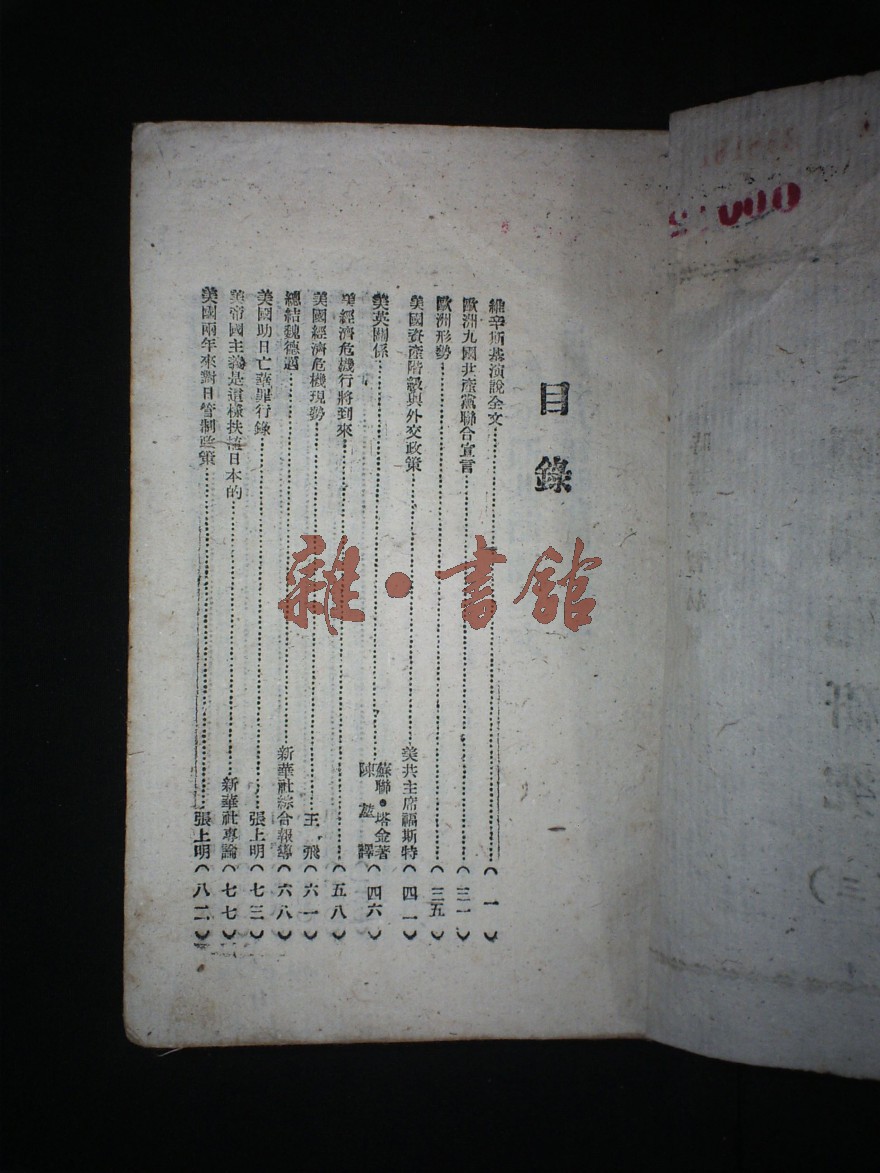 目錄
維辛斯基演說全文……(一)
歐洲九國共產黨聯合宣言……(三一)
歐洲形勢……(三五)
美國資產階級與外交政策……美共主席福斯特(四一)
美英關係……蘇聯·塔金著 陳 譯(四六)
美經濟危機行將到來……(五八)
美國經濟危機現勢……王飛(六一)
總結魏德邁……新華社綜合報導(六八)
美國助日亡華罪行錄……張上明(七三)
美帝國主義是這樣扶植日本的……新華社專論(七七)
美國兩年來對日管制政策……張上明(八二)
雜·書館